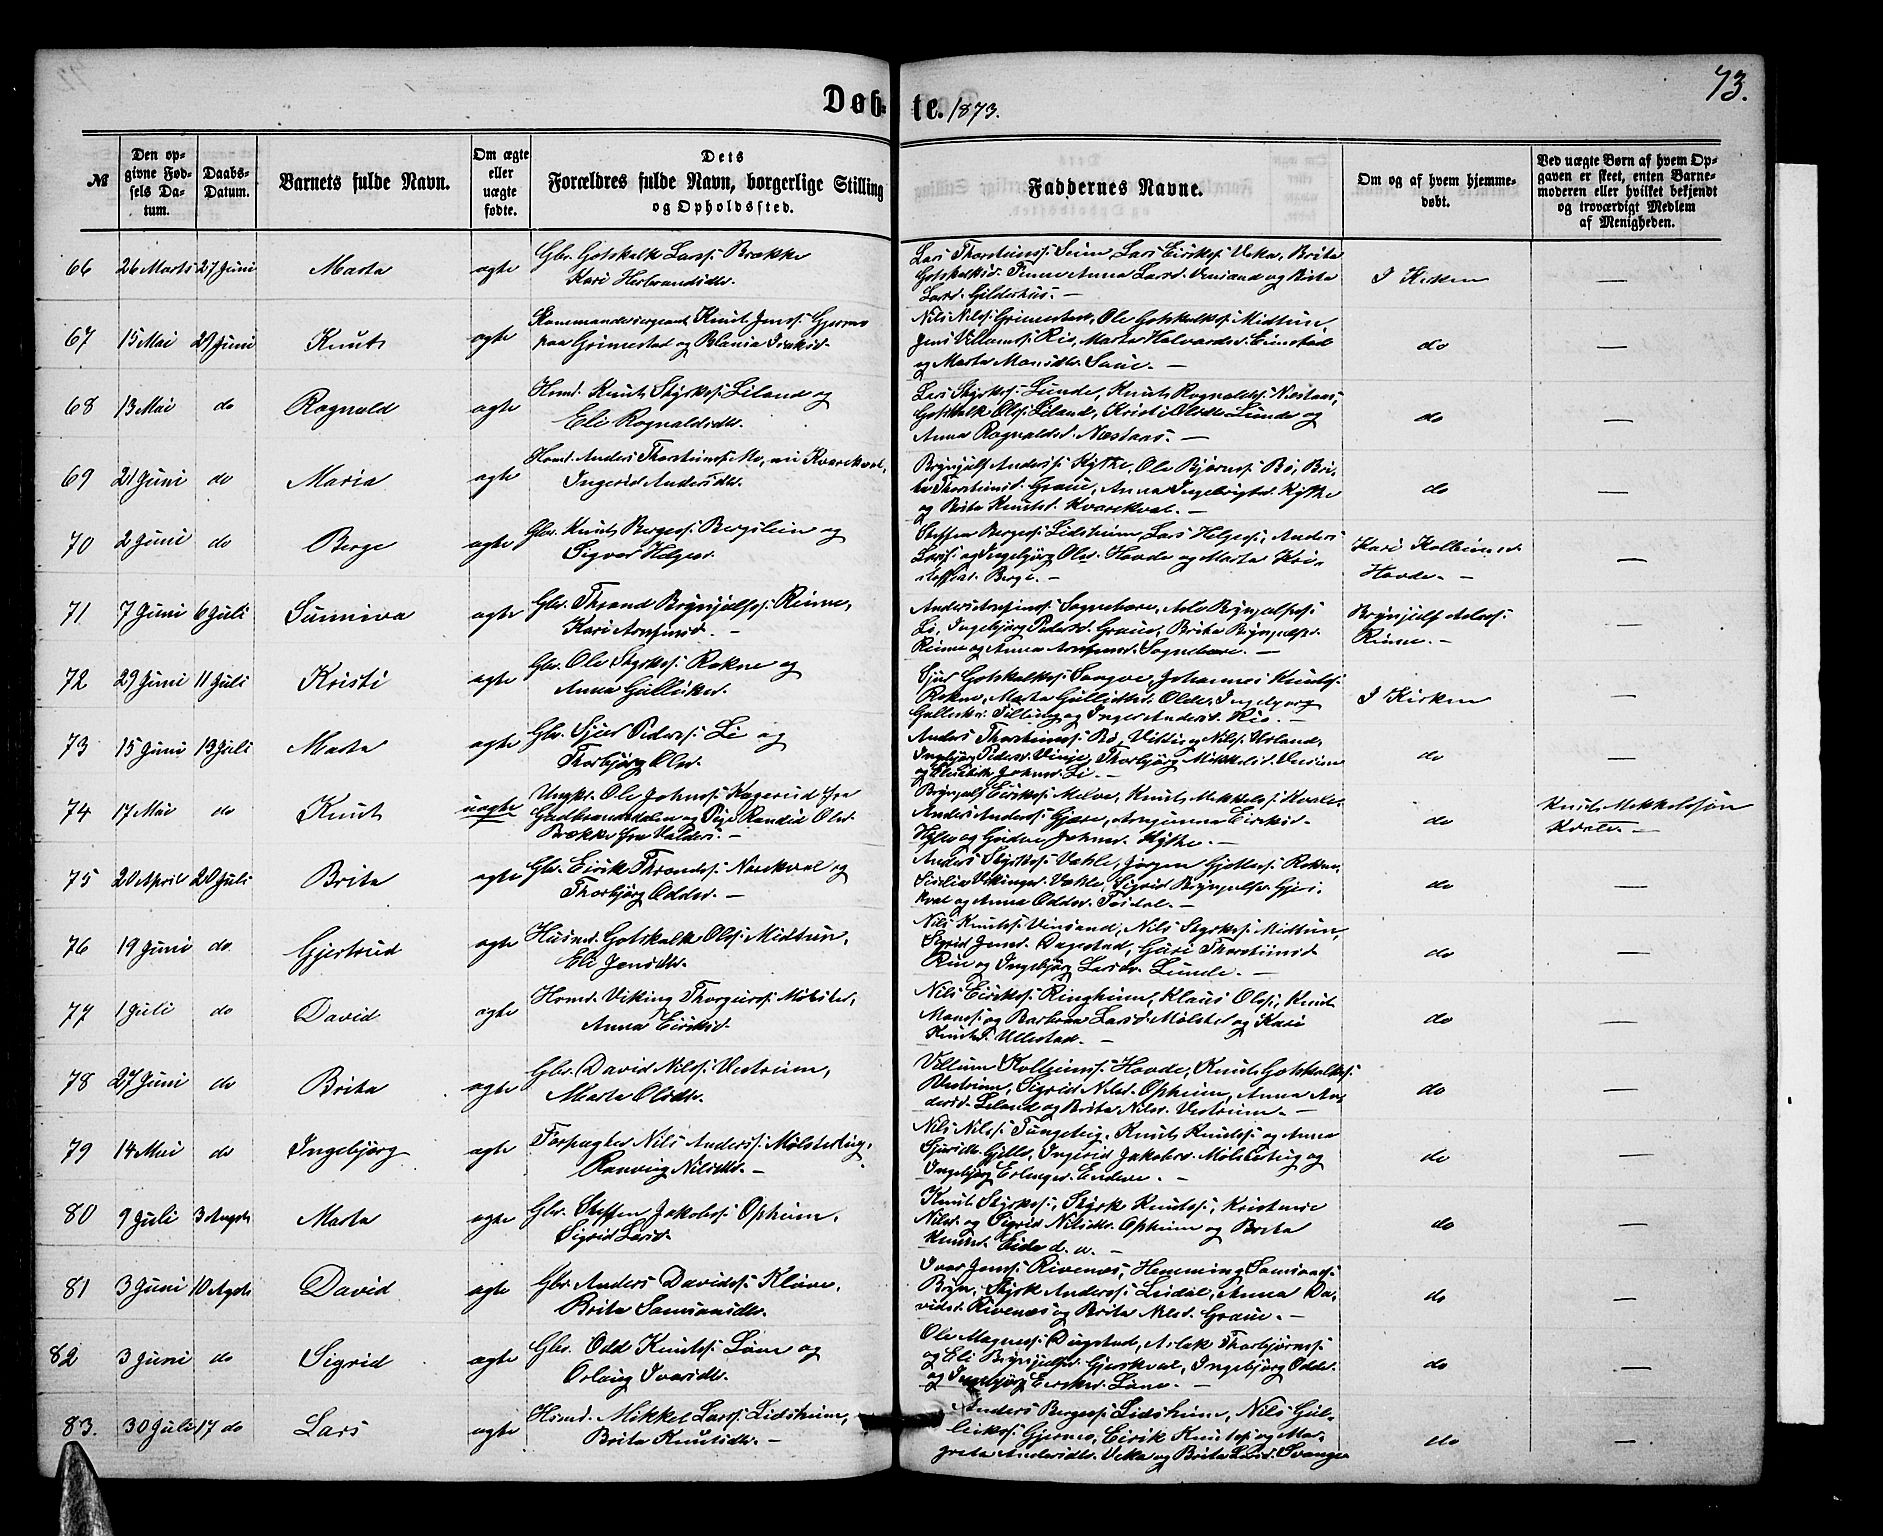 73.
Døbte. 1873.
№
Den opgivne Fødsels Datum.
Daabs-Datum.
Barnets fulde Navn.
Om ægte eller uægte fødte.
Dets Forældres fulde Navn, borgerlige Stilling og Opholdssted.
Faddernes Navne.
Om og af hvem hjemmedøbt.
Ved uægte Børn af hvem Opgaven er skeet, enten Barnemoderen eller hvilket bekjendt og troværdigt Medlem af Menigheden.
66 26 Marts 27 Juni Marta ægte Gbr. Gotskalk Larss: Brække
Kari Herbrandsdr.
Lars Thorsteinss: Seim, Lars Eirikss: Veka, Brita
Gotskalksd. Finne Anna Larsd. Vinsand og Brita
Larsd. Gilderhus. —
I Kirken —
67 15 Mai 29 Juni Knut ægte Kommandersergeant Knut Jenss: Gjerme
paa Grimestad og
Nils Nilss: Grimestad, Ole Gotskalkss: Midtun,
Jens Villamss: Rie, Marta Halvardsd. Eimstad
og Marta Monsdr. Saue. —
do —
68 13 Mai do Ragnald ægte Hsmd. Knut Styrkss: Liland og
Eli Ragnaldsdr.
Lars Styrkss: Lunde, Knut Ragnaldss: Næstaas,
Gotskalk Olss: Liland, Kristi Olsdr Lunde og
Anna Ragnaldsd. Næstaas. —
do —
69 21 Juni do Maria ægte Hsmd. Anders Thorsteinss: Mo, nu Kvarekval,
Ingerid Andersdr.
Brynjulf Anderss: Kytke, Ole Bjørnss: Bø, Bri-
ta Thorsteinsd. Graue, Anna Ingebrigtsd. Kytke
og Brita Knutsd. Kvarekval. —
do —
70 2 Juni do Berge ægte Gbr. Knut Bergess: Bergslein og
Sigvor Helgesd.
Steffen Bergess: Lidsheim, Lars Helgess:, Anders
Larss: og Ingebjørg Olsd. Hovde og Marta Kri-
stoffsd. Berge. —
Kari Kolbeinsd.
Hovde. — —
71 7 Juni 6 Juli Sunniva ægte Gbr. Thrond Brynjulfss: Rinne,
Kari Arnfinsd. —
Anders Arnfinss: Sognebære, Asle Brynjulfss:
Li, Ingebjørg Pedersd. Graue, Brita Brynjulfsd.
Rinne og Anna Arnfinsd. Sognebære. —
Brynjulf Asless:
Rinne. — —
72 29 Juni 11 Juli Kristi ægte Gbr. Ole Styrkss: Rokne og
Anna Gulleiksd.
Sjur Gotskalkss: Saugve, Johannes Knutss:
Rokne, Marta Gulleiksd. Olde, Ingebjørg
Gulleiksd. Tillung og Inger Andersd. Rio. —
I Kirken —
73 15 Juni 13 Juli Marta ægte Gbr. Sjur Pederss: Li og
Thorbjørg Olsd.
Anders Thorsteinss: Bø, Nilss:
Ingebjørg Pedersd. Vinje, Thorbjørg Mikkelsd.
og Johnsd. Li. —
do —
74 17 Mai do Knut uægte Ungkr. Ole Johnss: Kagerud fra
Gudbrandsdalen og Pige Randid Olsd.
Brække fra Valders. —
Brynjulf Eirikss: Melve, Knut Mikkelss: Kvale,
Anders Anderss: Gjære, Arngunna Eiriksd.
og Gudve Johnsd. Kytke. —
do Knut Mikkelssøn
Kvale. —
75 20 April 20 Juli Brita ægte Gbr. Eirik Throndss: Norekval og
Thorbjørg Oddsd. —
Anders Styrkss: Væhle, Jørgen Gjottss: Rokne,
Sisilia Vikingsd. Væhle, Sigrid Brynjulfsd. Gjers-
kval og Anna Oddsd. —
do —
76 19 Juni do Gjertrud ægte Husmd. Gotskalk Olss: Midtun,
Eli Jensdr.
Nils Knutss: Vinsand, Nils Styrkss: Midtun,
Sigrid Jensd. Dagestad, Guri Thorsteinsd.
Rie og Ingebjørg Larsdr. Lunde. —
do —
77 1 Juli do David ægte Hsmd. Viking Thorgerss: Mølster,
Anna Eiriksd.
Nils Eirikss: Ringheim, Klaus Olss:, Knut
Monss: og Barbraa Larsd. Mølster og Kari
Knutsd. Ullestad. —
do —
78 27 Juni do Brita ægte Gbr. David Nilss: Vestrheim,
Marta Olsdr.
Villum Kolbeinss: Hovde, Knut Gotskalkss:
Vestrheim, Sigrid Nilsd. Opheim, Anna An-
dersd. Liland og Brita Nilsd. Vestrheim. —
do —
79 14 Mai do Ingebjørg ægte Forpagter Nils Anderss: Mølsterteig,
Ranveig Nilsdr. —
Nils Nilss: Tungeteig, Knut Knutss: og Anna
Sjursdr. Gjelle, Ingerid Jakobsd. Mølsterteig og
Ingebjørg Erlingsd. Endeve. —
do —
80 9 Juli 3 Augst Marta ægte Gbr. Steffen Jakobss: Opheim,
Sigrid Larsd.
Knut Styrkss:, Styrk Knutss:, Kristense
Nilsd. og Sigrid Nilsdr. Opheim og Brita
Knutsd. Eide d. æ. —
do —
81 3 Juni 10 Augst David ægte Gbr. Anders Davidss: Kløve,
Brita Samsonsdr.
Ivar Jenss: Rivenæs, Hemming Samsonss:
Bryn, Styrk Anderss: Lirdøl, Anna Da-
vidsd. Rivenæs og Brita Nilsd. Graue. —
do —
82 3 Juni do Sigrid ægte Gbr. Odd Knutss: Løne og
Orlaug Ivarsdr.
Ole Magness: Dugstad, Aslak Thorbjørnss:
og Eli Brynjulfsd. Gjerskval, Ingebjørg Oddsd.
og Ingebjørg Eiriksd. Løne. —
do —
83. 30 Juli 17 do Lars ægte Hsmd. Mikkel Larss: Lidsheim,
Brita Knutsdr. —
Anders Bergess: Lidsheim, Nils Gul-
leikss: Gjerme, Eirik Knutss: og Ma-
greta Andersdr. Veka og Brita Larsd. Svange
do —